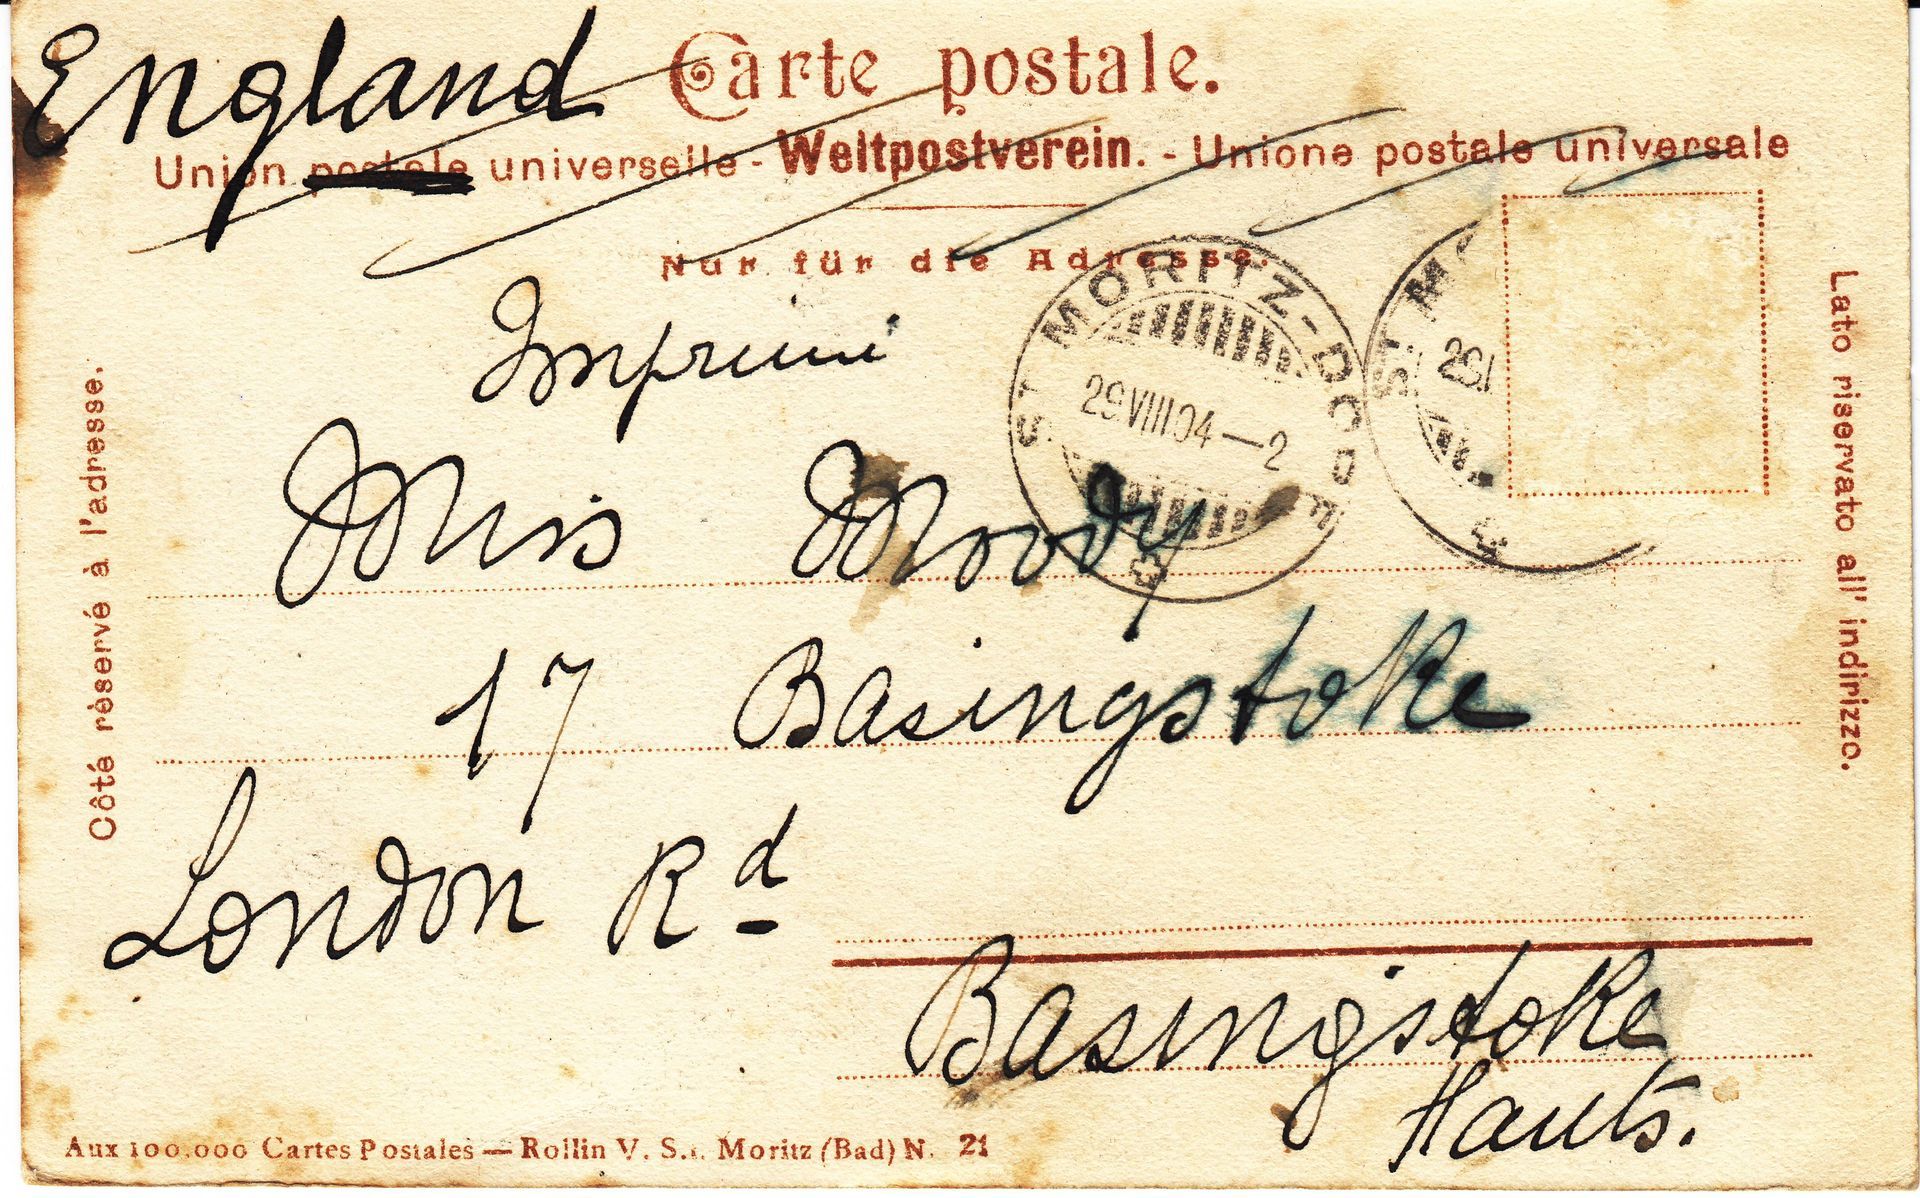 England
Carte postale.
Union postale universelle - Weltpostverein. - Unione postale universale
Nur für die Adresse.
Imprimé
ST. MORITZ-DORF
29 VIII 04 — 2
ST. M
29
Miss Moody
17 Basingstoke
London Rd
Basingstoke
Hants.
Côté réservé à l'adresse.
Lato riservato all' indirizzo.
Aux 100.000 Cartes Postales — Rollin V. St. Moritz (Bad) N. 21